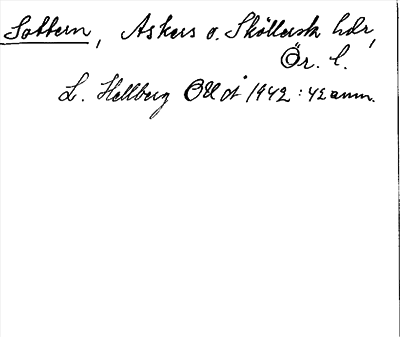 Sottern, Askers o. Sköllersta hdr,
Ör. l.
L. Hellberg OUOÅ 1942 : 42 anm.